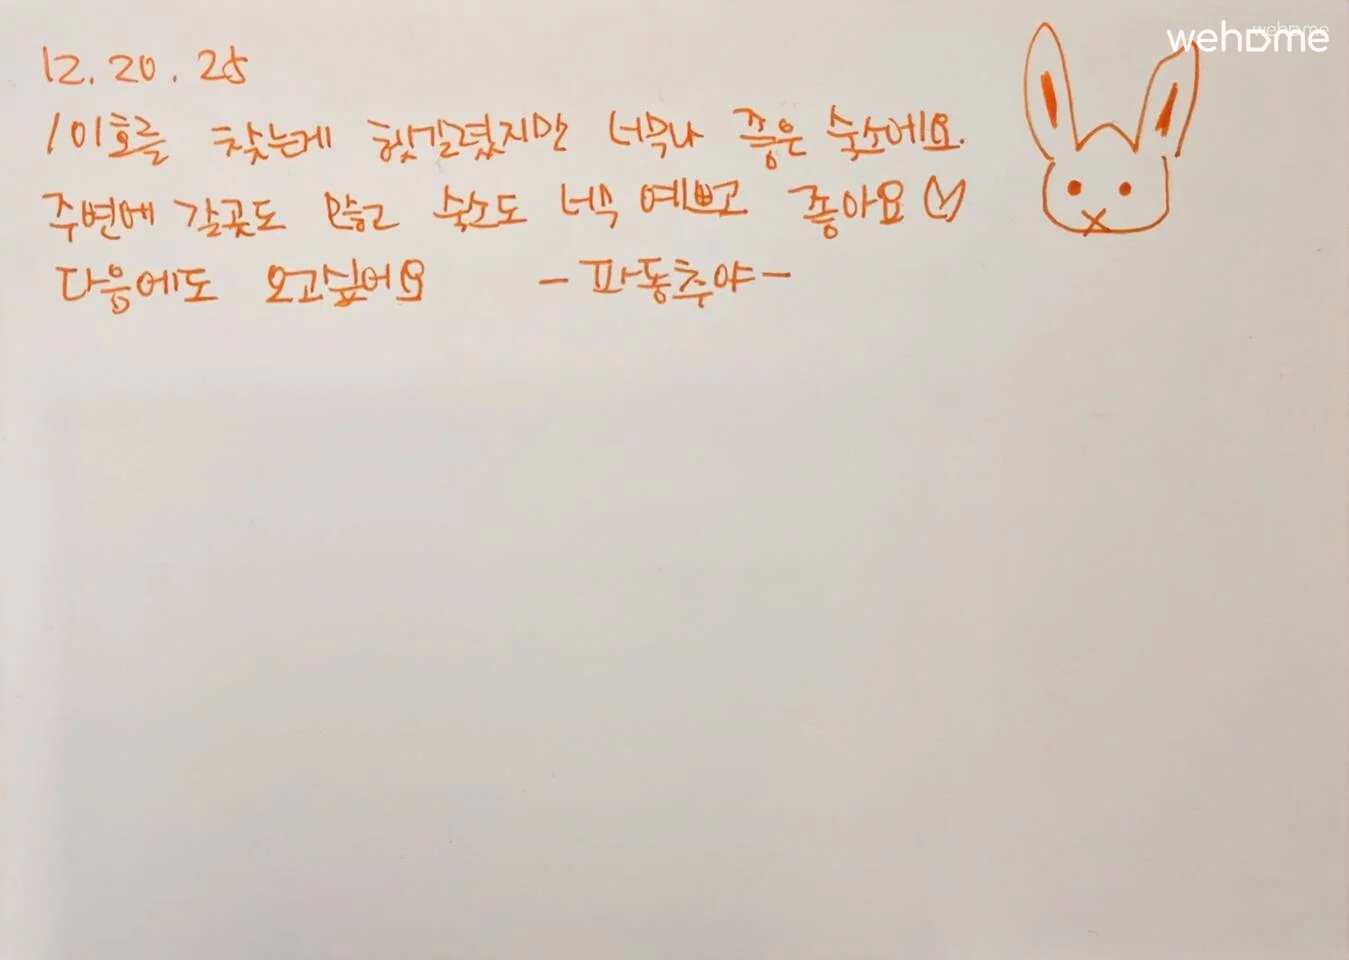 wehome
12.20.25
101호를 찾는게 헷갈렸지만 너무나 좋은 숙소에요.
주변에 갈곳도 많고 숙소도 너무 예쁘고 좋아요♡
다음에도 오고싶어요 -파동추야-